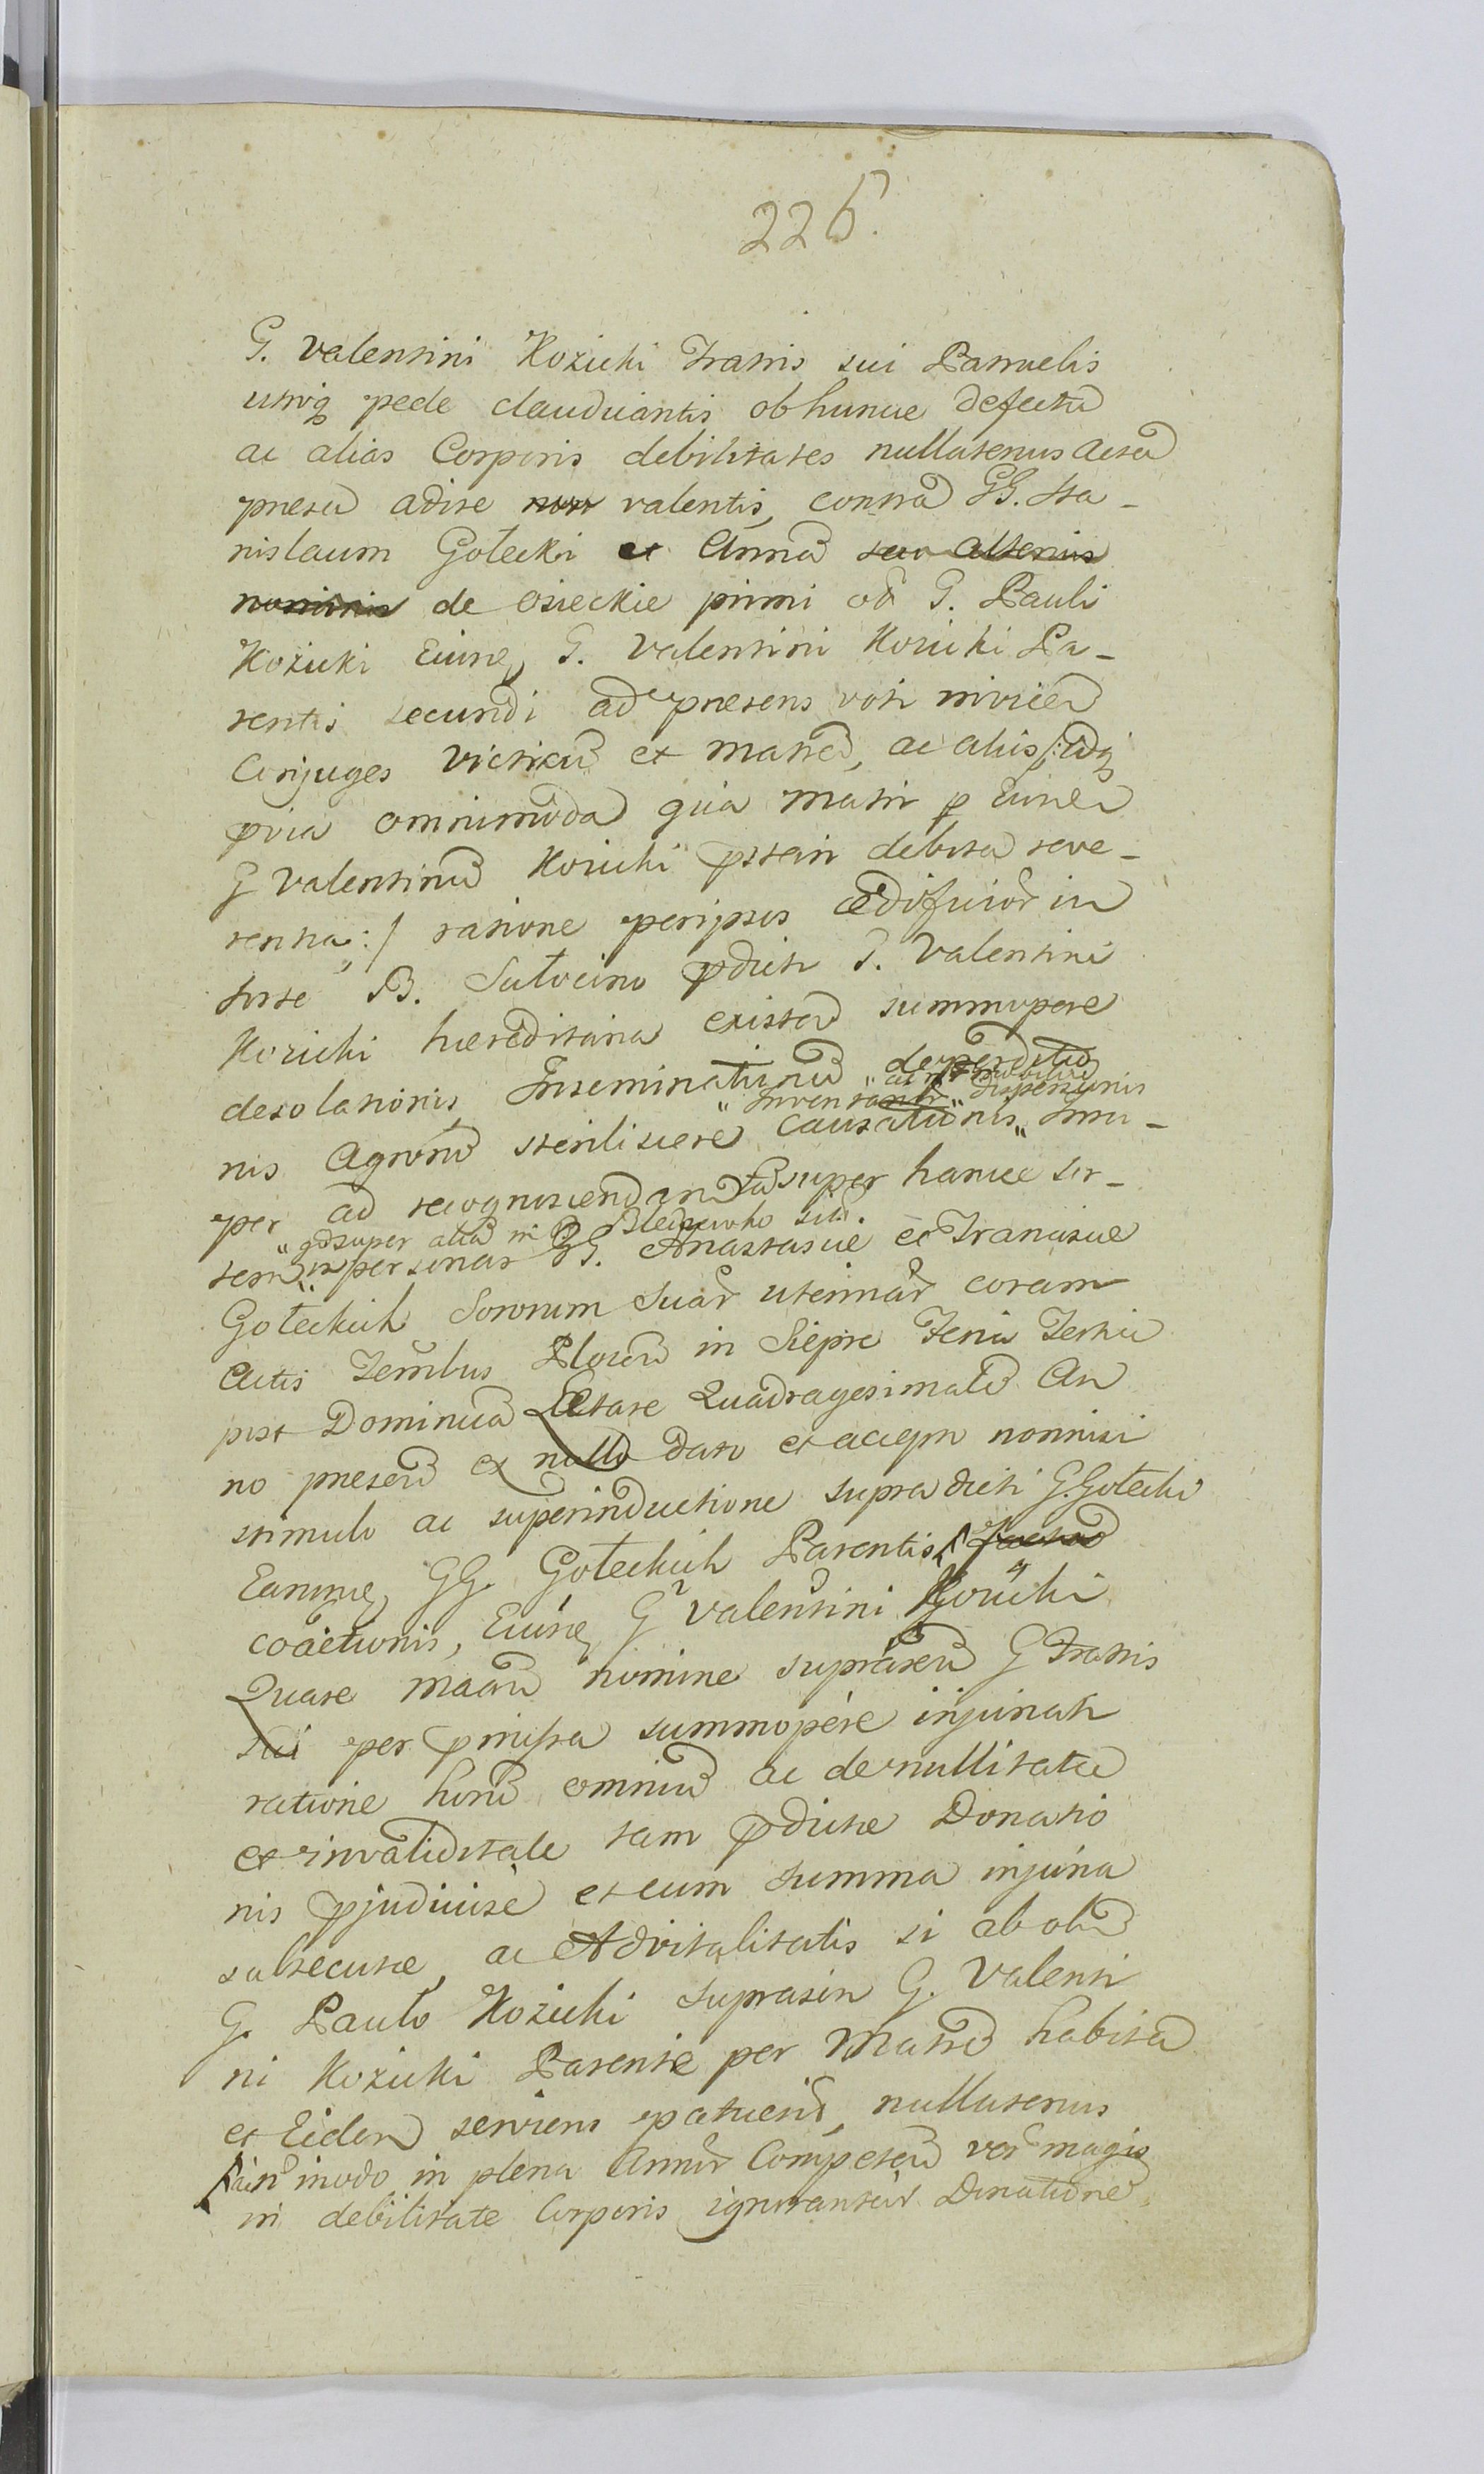 225.
G. Valentini Kozicki Fratris sui Patruelis
utroq pede claudicantis ob huncce defectu
ac alias Corporis debilitates nullatenus acta
presen adire non valentis, contra GG. Sta-
nislaum Gołecki et Anna seu alterius
nominis de osieckie primi ob G. Pauli
Kozicki Eiusq, G. Valentini Kozicki Pa-
rentis secundi ad presens voti invicem
Conjuges Vitricu et Matre, ac alios /: idq
pvia omnimoda qua Matri p Eunde
G Valentinu Kozicki pstari debita reve-
rentia :/ ratione per ipsos ædificior in
sorte B. Sutocino pdicti G. Valentini
Kozicki hæreditaria existen summopere
desolationis, Inseminationu deperditio
" ac rr mobiliu
" Inventaror " dispersionis
nis Agroru sterilisere Causationis " Insu-
per ad recognoscendam super hancce sor-
" gdsuper alia in B Bledzewko sit.
tem " in personas GG. Anastasiæ et Franciscæ
Gołeckich Sororum suar uterinar coram
Actis Tembus Plocen in Sieprc Feria Tertia
post Dominica Lætare Quadragesimale An
no presen ex nullo dato et accepto nonnisi
stimulo ac superinductione supra dicti G. Gołecki
Earumq GG. Gołeckich Parentis, factae
coactionis, Eiusq G Valentini Kozicki
Quare Maãn nomine suprasen G Fratris
sui per pmissa summopere injuriati
ratione horu omniu ac de nullitate
et invaliditate tam pdictæ Donatio
nis pjudiciosè et cum summa injuria
subsecutæ, ac Advitalitatis si ab olim
G. Paulo Kozicki suprasin G. Valenti
ni Kozicki Parente per Matre habita
et Eidem serviens patuerit, nullatenus
in modo in plena Annor Competen ver magis
in debilitate Corporis ignorantur Donatione